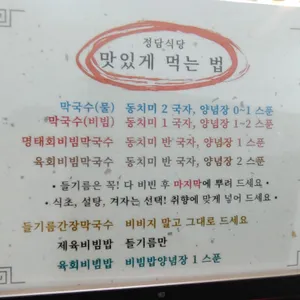 정담식당
맛있게 먹는 법
막국수(물) 동치미 2 국자, 양념장 0~1 스푼
막국수(비빔) 동치미 1 국자, 양념장 1~2 스푼
명태회비빔막국수 동치미 반 국자, 양념장 1 스푼
육회비빔막국수 동치미 반 국자, 양념장 2 스푼
• 들기름은 꼭! 다 비빈 후 마지막에 뿌려 드세요 •
• 식초, 설탕, 겨자는 선택! 취향에 맞게 넣어 드세요 •
들기름간장막국수 비비지 말고 그대로 드세요
제육비빔밥 들기름만
육회비빔밥 비빔밥양념장 1 스푼